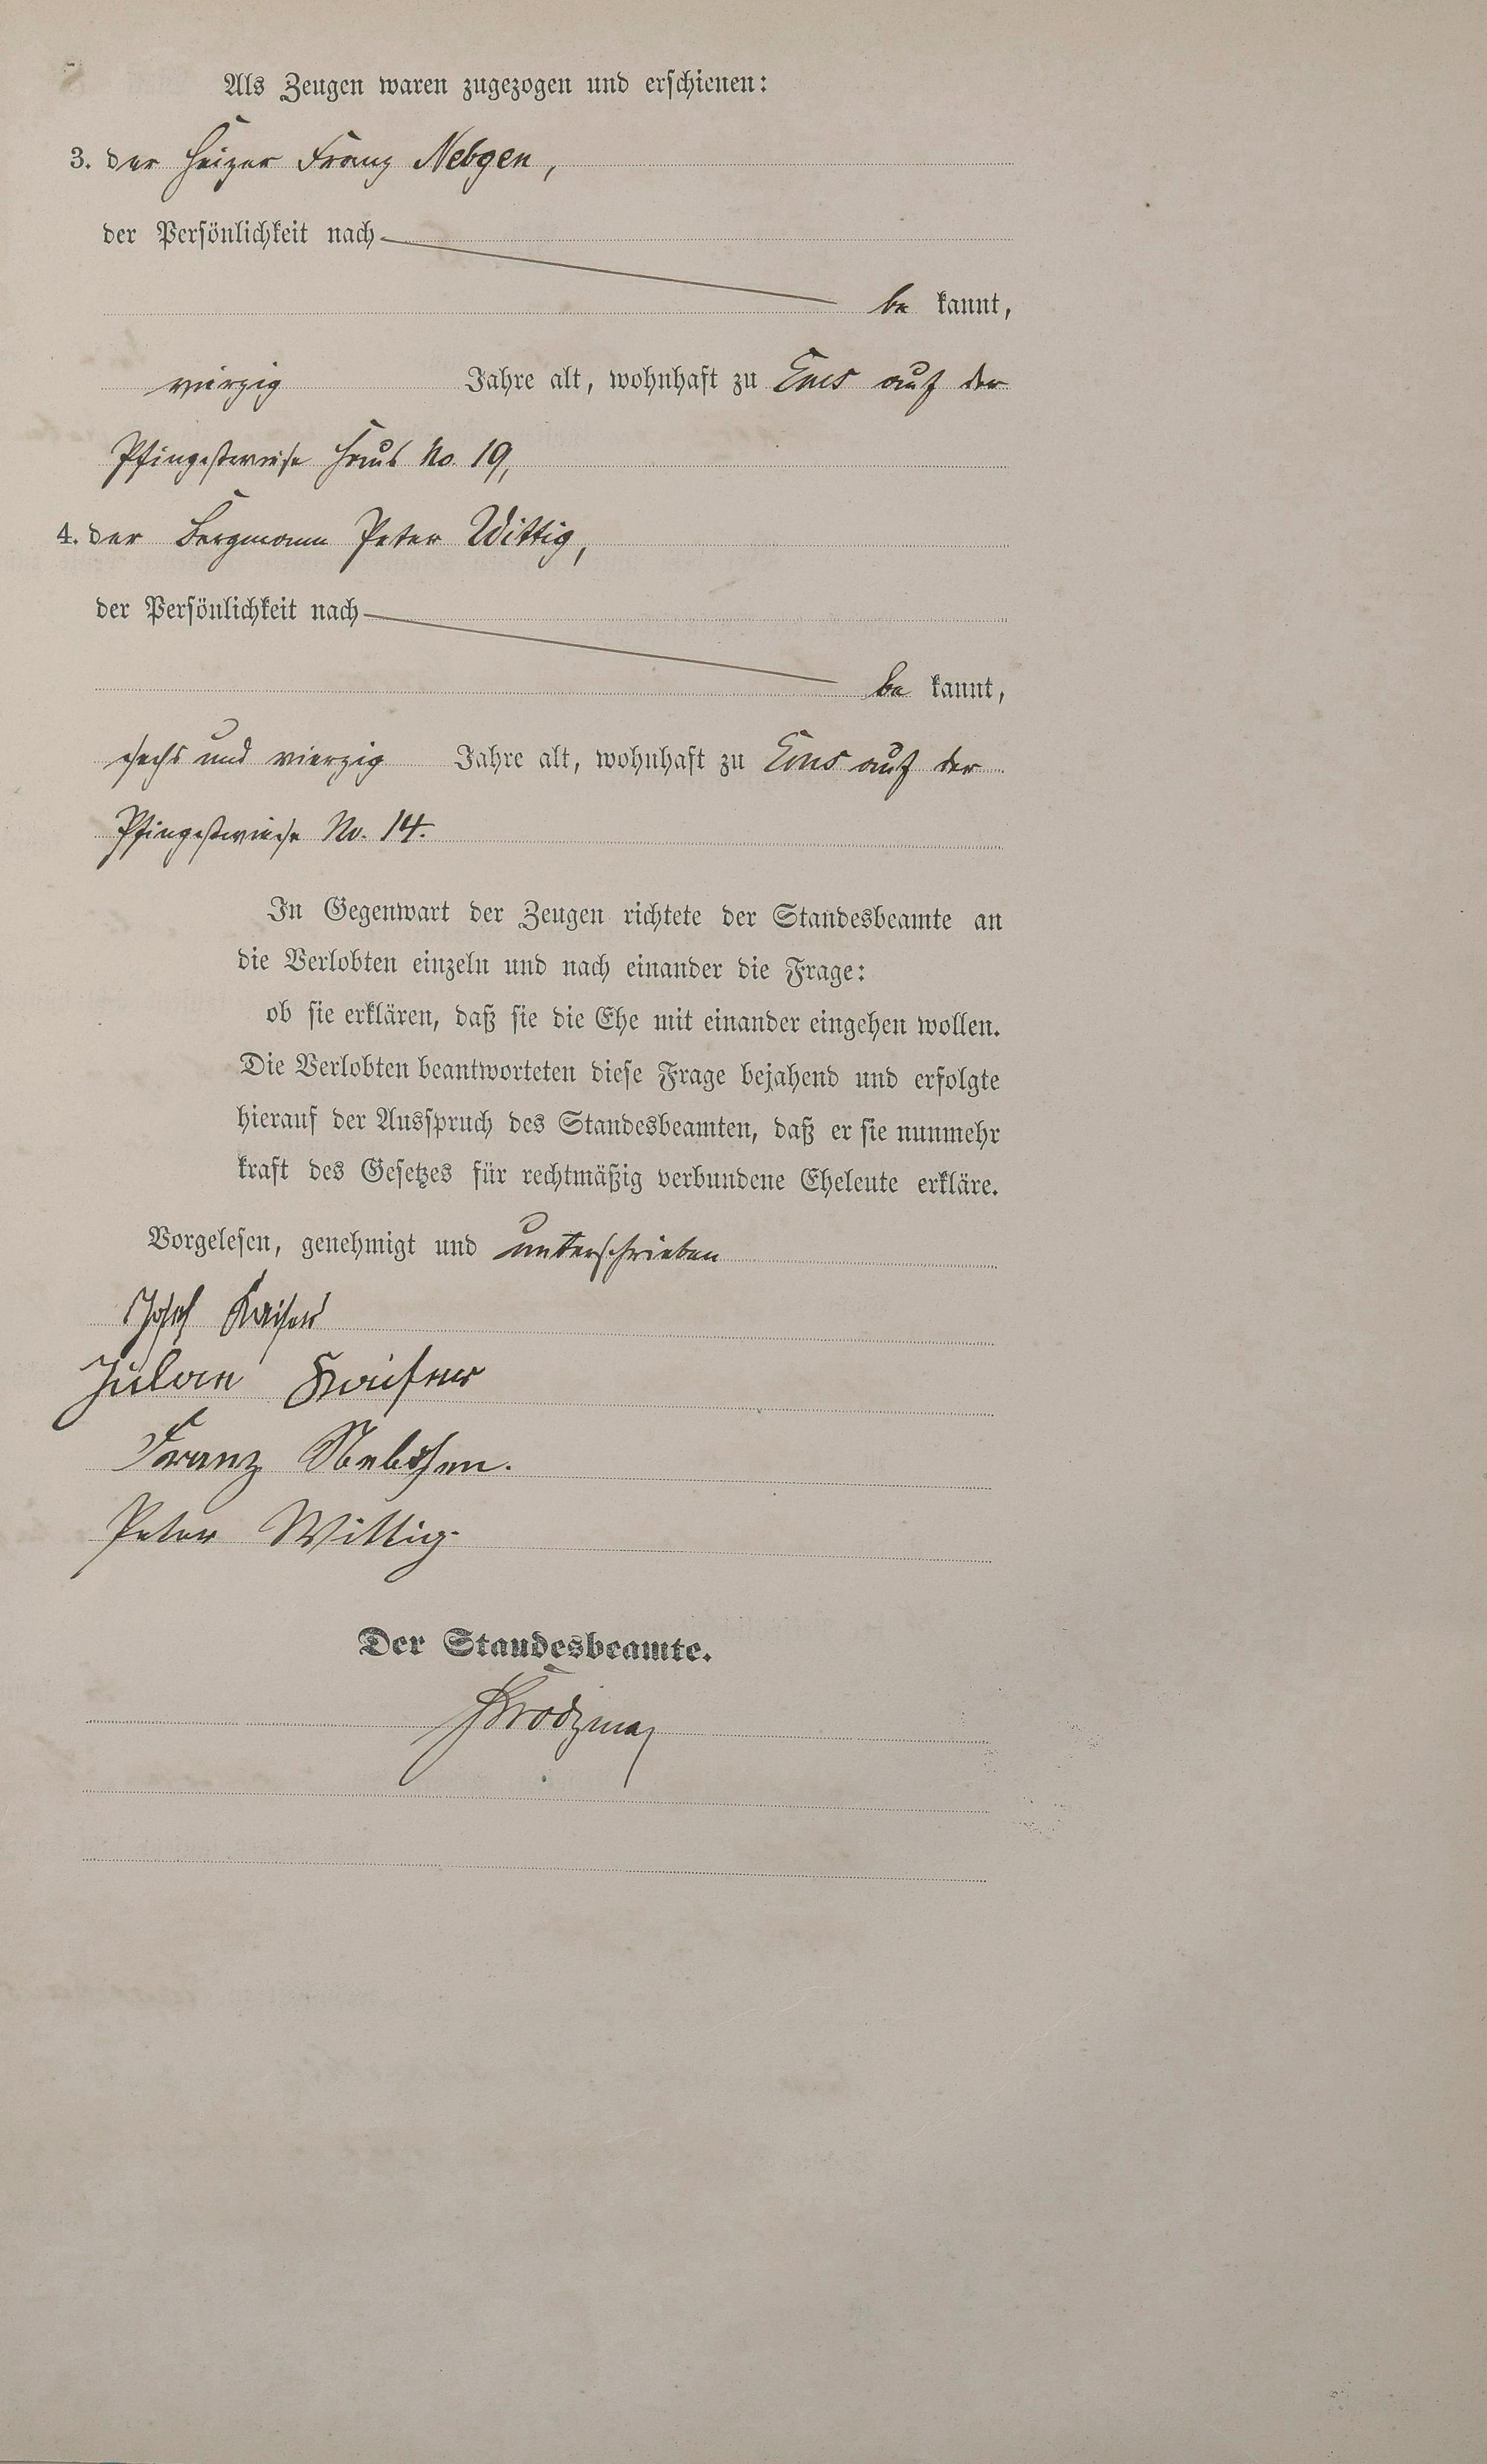 Als Zeugen waren zugezogen und erschienen:
3. der Heizer Franz Nebgen,
der Persönlichkeit nach
be kannt,
vierzig Jahre alt, wohnhaft zu Ems auf der
Pfingstwiese Haus No. 19,
4. der Bergmann Peter Wittig,
der Persönlichkeit nach
be kannt,
sechs und vierzig Jahre alt, wohnhaft zu Ems auf der
Pfingstwiese No. 14.
In Gegenwart der Zeugen richtete der Standesbeamte an
die Verlobten einzeln und nach einander die Frage:
ob sie erklären, daß sie die Ehe mit einander eingehen wollen.
Die Verlobten beantworteten diese Frage bejahend und erfolgte
hierauf der Ausspruch des Standesbeamten, daß er sie nunmehr
kraft des Gesetzes für rechtmäßig verbundene Eheleute erkläre.
Vorgelesen, genehmigt und unterschrieben
Josef Kaiser
Kaiser
Franz
Peter Wittig.
Der Standesbeamte.